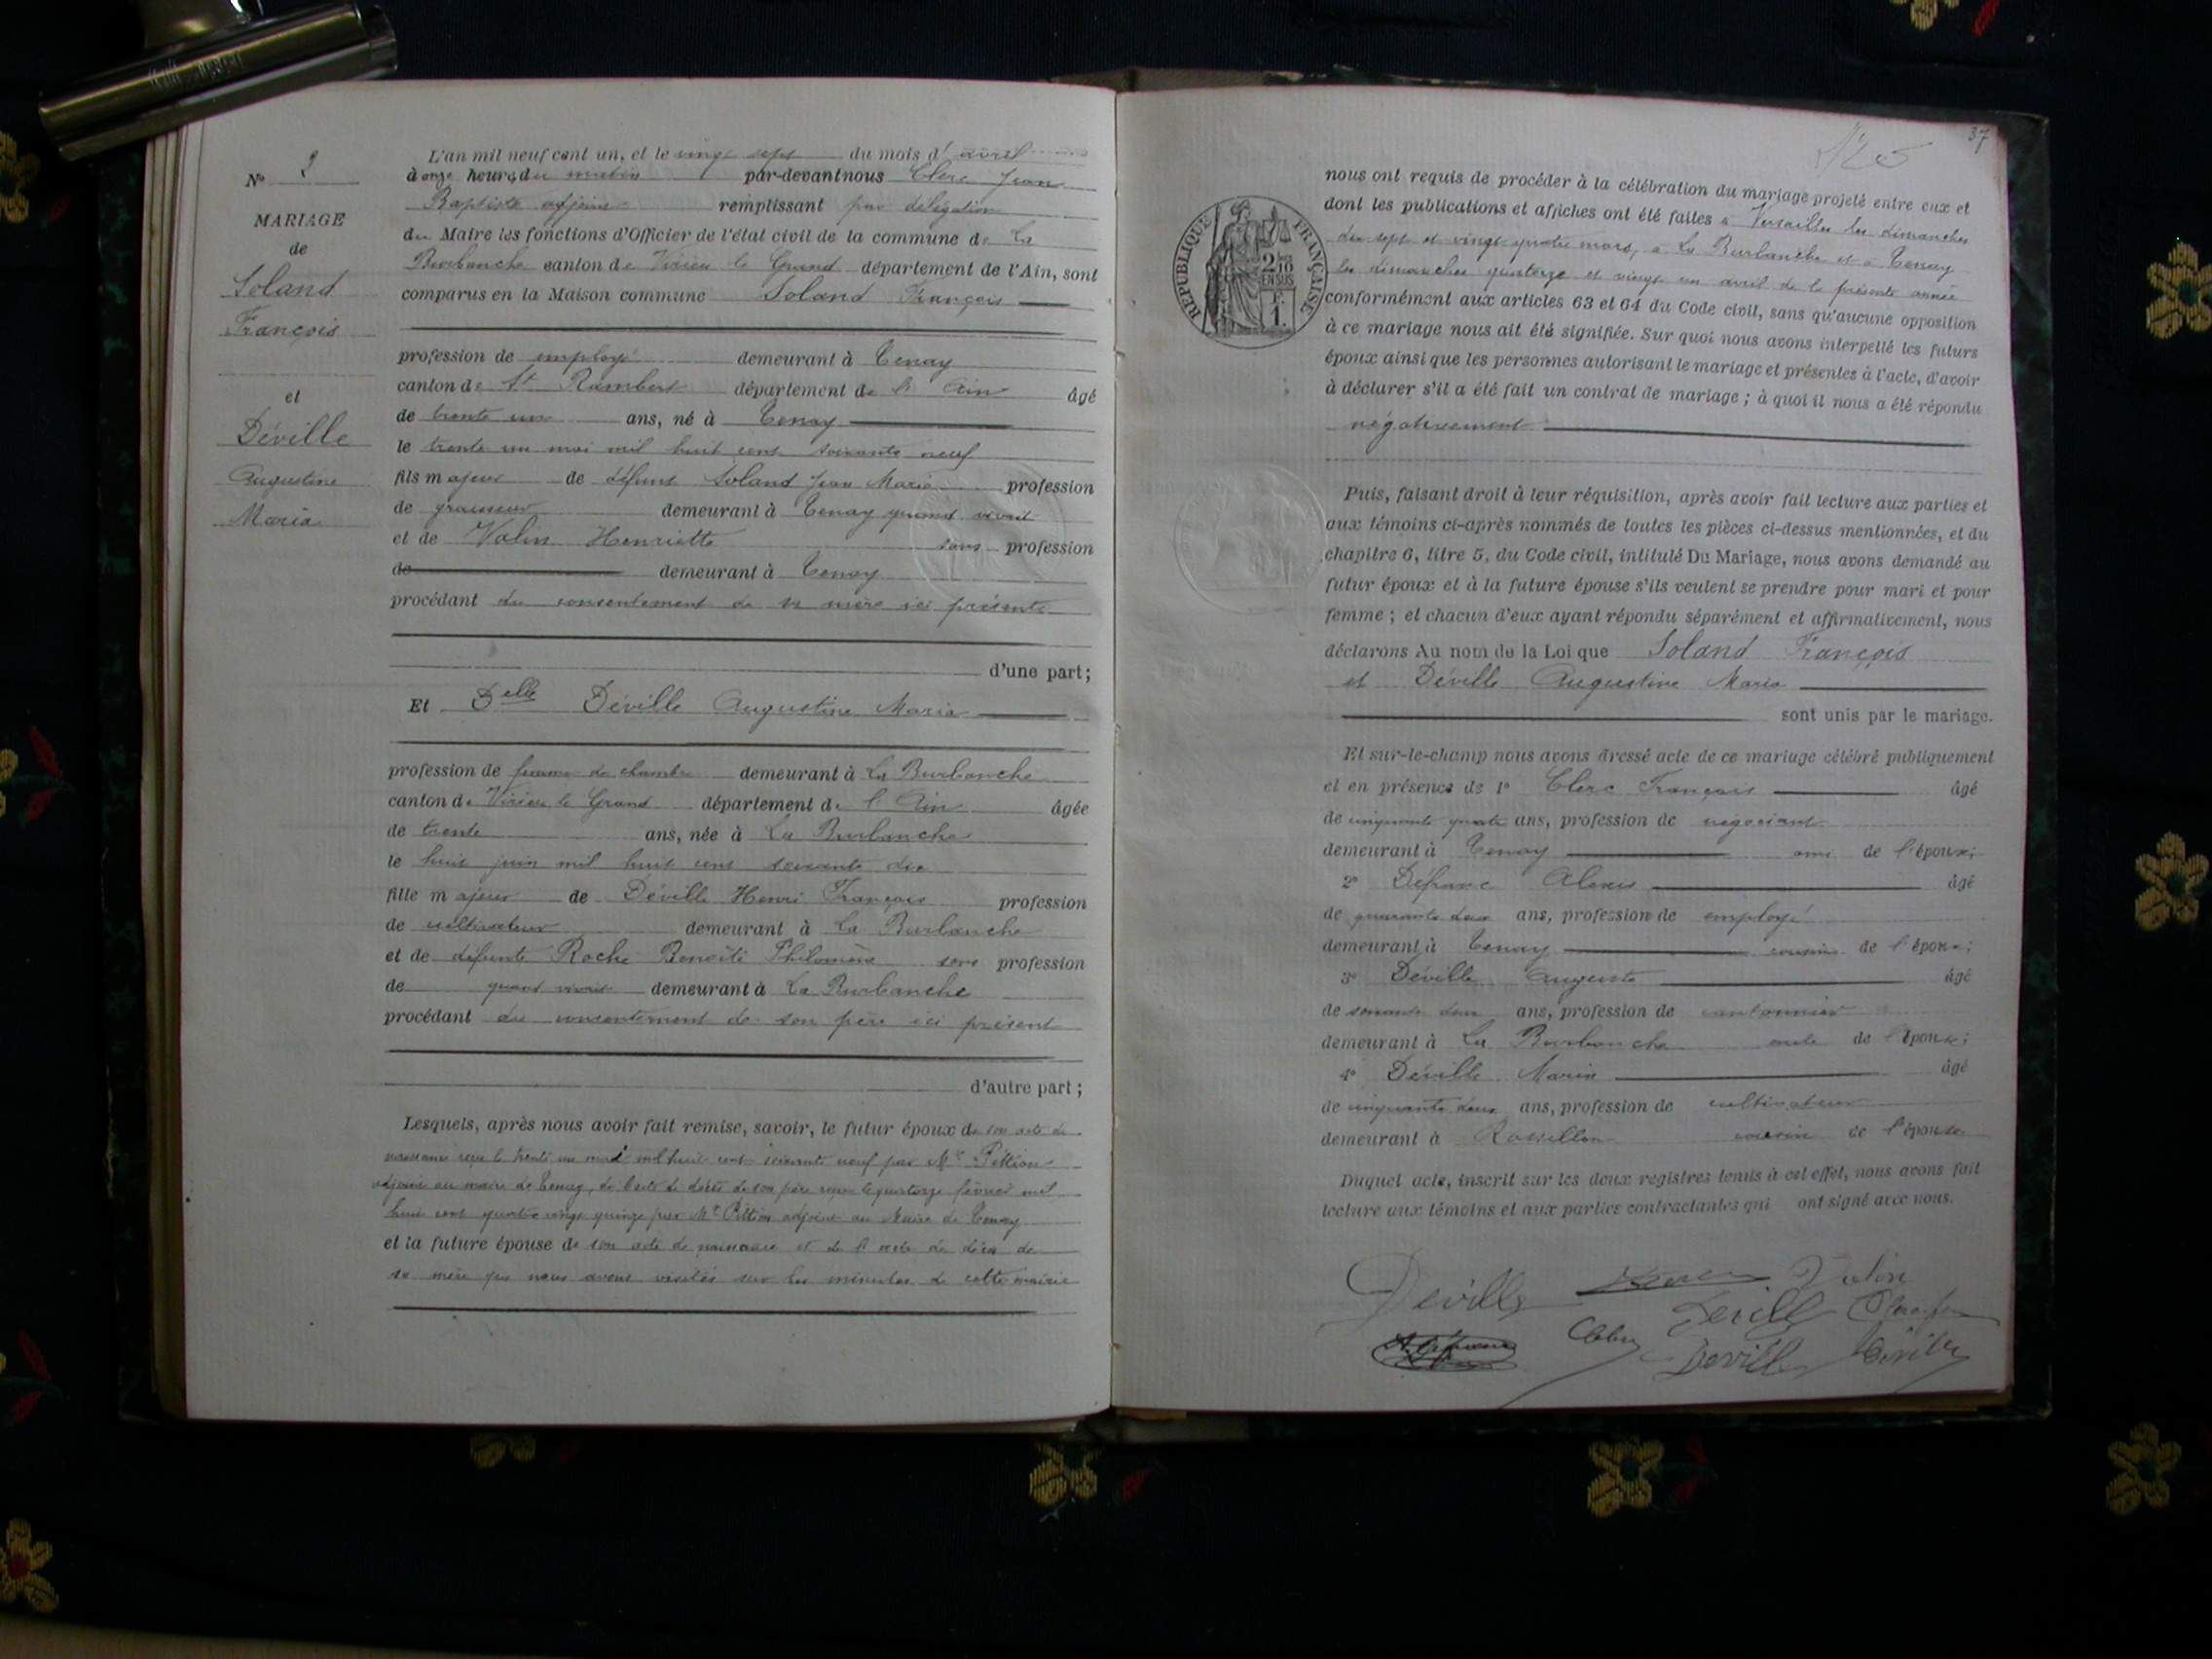 N° 2
MARIAGE
de
Soland
François
et
Déville
Augustine
Maria
L'an mil neuf cent un, et le vingt sept du mois d' avril
à onze heures du matin par-devant nous Clerc Jean
Baptiste adjoint remplissant par délégation
du Maire les fonctions d'Officier de l'état civil de la commune de La
Burbanche canton de Virieu le Grand département de l'Ain, sont
comparus en la Maison commune Soland François
profession de employé demeurant à Tenay
canton de St Rambert département de l'Ain âgé
de trente un ans, né à Tenay
le trente un mai mil huit cent soixante neuf
fils majeur de défunt Soland Jean Marie profession
de graisseur demeurant à Tenay quand vivait
et de Valin Henriette sans profession
de demeurant à Tenay
procédant du consentement de sa mère ici présente
d'une part;
Et Delle Déville Augustine Maria
profession de femme de chambre demeurant à La Burbanche
canton de Virieu le Grand département de l'Ain âgée
de trente ans, née à La Burbanche
le huit juin mil huit cent soixante dix
fille majeur de Déville Henri François profession
de cultivateur demeurant à La Burbanche
et de défunte Roche Benoîte Philomène sans profession
de quand vivait demeurant à La Burbanche
procédant du consentement de son père ici présent
d'autre part;
Lesquels, après nous avoir fait remise, savoir, le futur époux de son acte de
naissance reçu le trente un mai mil huit cent soixante neuf par Mr Pittion
adjoint au maire de Tenay, de l'acte de décès de son père reçu le quatorze février mil
huit cent quatre vingt quinze par Mr Pittion adjoint au Maire de Tenay
et la future épouse de son acte de naissance et de l'acte de décès de
sa mère que nous avons visités sur les minutes de cette mairie
37
RÉPUBLIQUE FRANÇAISE
2/10
EN SUS
1F.
nous ont requis de procéder à la célébration du mariage projeté entre eux et
dont les publications et affiches ont été faites à Versailles les dimanches
dix sept et vingt quatre mars, à La Burbanche et à Tenay
les dimanches quatorze et vingt un avril de la présente année
conformément aux articles 63 et 64 du Code civil, sans qu'aucune opposition
à ce mariage nous ait été signifiée. Sur quoi nous avons interpellé les futurs
époux ainsi que les personnes autorisant le mariage et présentes à l'acte, d'avoir
à déclarer s'il a été fait un contrat de mariage; à quoi il nous a été répondu
négativement
Puis, faisant droit à leur réquisition, après avoir fait lecture aux parties et
aux témoins ci-après nommés de toutes les pièces ci-dessus mentionnées, et du
chapitre 6, titre 5, du Code civil, intitulé Du Mariage, nous avons demandé au
futur époux et à la future épouse s'ils veulent se prendre pour mari et pour
femme; et chacun d'eux ayant répondu séparément et affirmativement, nous
déclarons Au nom de la Loi que Soland François
et Déville Augustine Maria
sont unis par le mariage.
Et sur-le-champ nous avons dressé acte de ce mariage célébré publiquement
et en présence de 1° Clerc François âgé
de cinquante quatre ans, profession de négociant
demeurant à Tenay ami de l'époux;
2° Defranc Alexis âgé
de quarante deux ans, profession de employé
demeurant à Tenay cousin de l'époux;
3° Déville Auguste âgé
de soixante deux ans, profession de cantonnier
demeurant à La Burbanche oncle de l'épouse;
4° Déville Marin âgé
de cinquante deux ans, profession de cultivateur
demeurant à Rossillon cousin de l'épouse
Duquel acte, inscrit sur les deux registres tenus à cet effet, nous avons fait
lecture aux témoins et aux parties contractantes qui ont signé avec nous.
Déville Valin
Déville
Déville